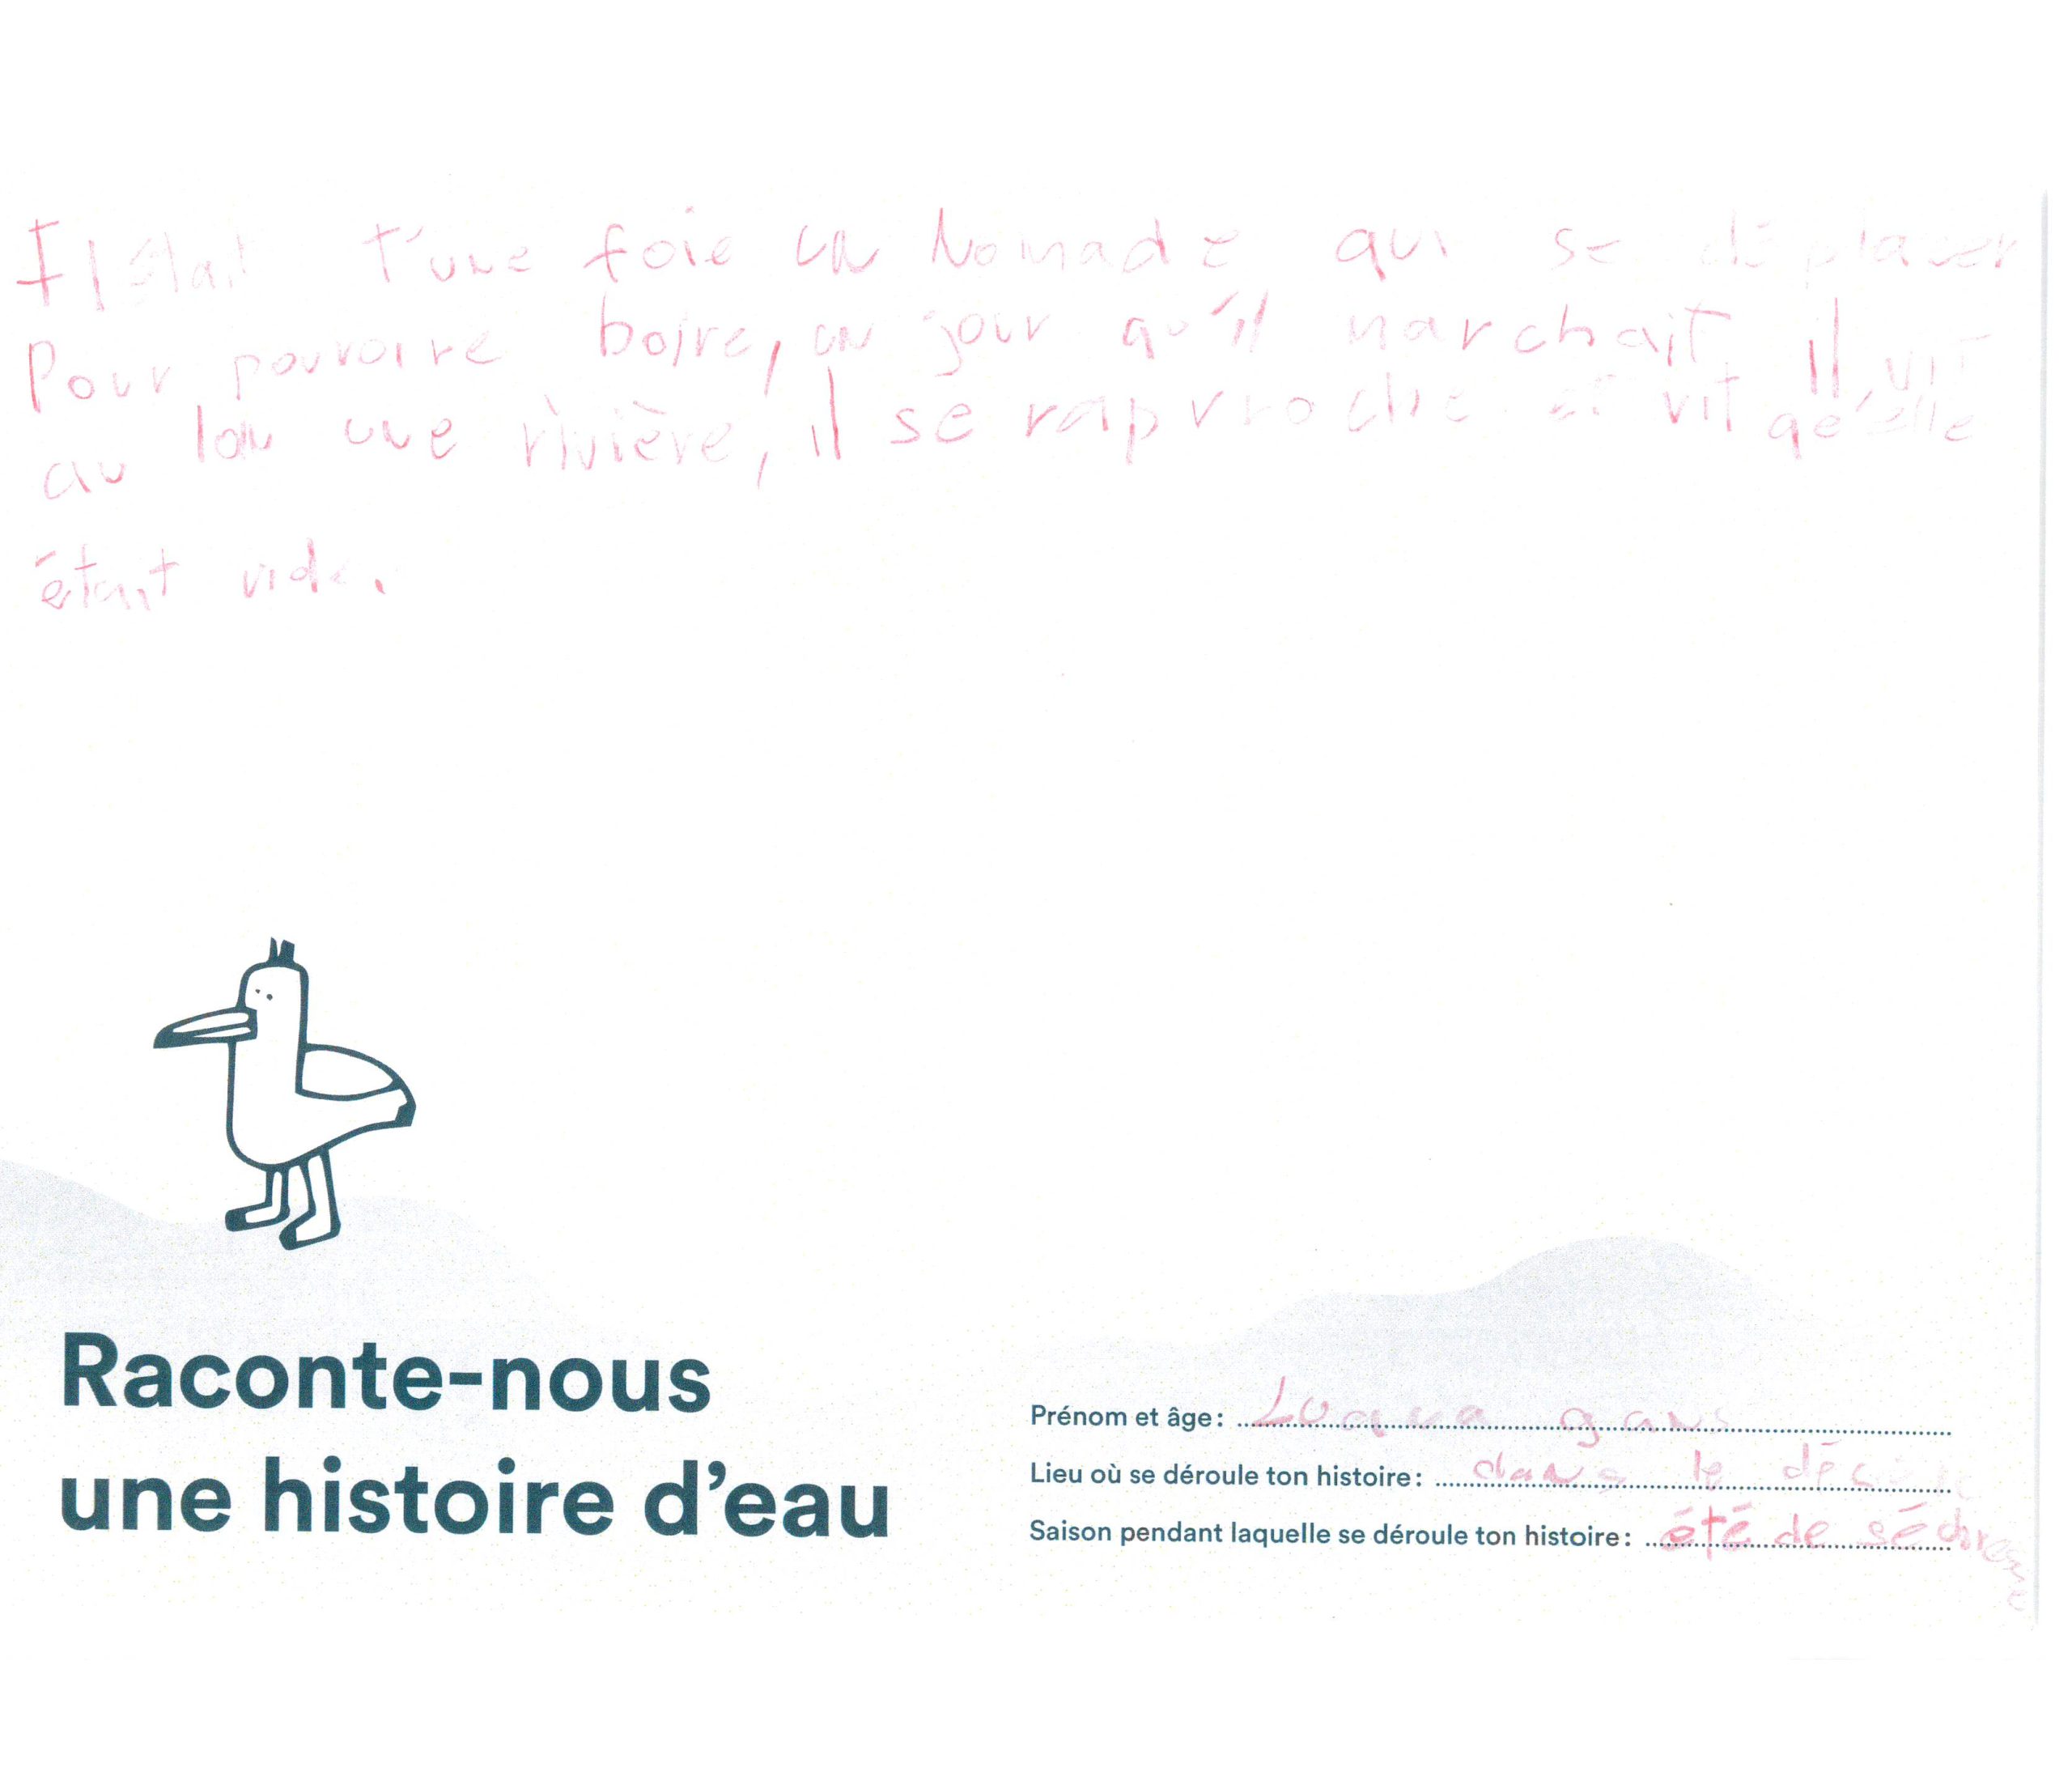 Il était t'une foie un Nomade qui se déplacer
Pour pouvoire boire, un jour qu'il marchait il vit
au loin une rivière, il se rapproche et vit qu'elle
était vide.
Raconte-nous
une histoire d'eau
Prénom et âge: 9 ans
Lieu où se déroule ton histoire: dans le
Saison pendant laquelle se déroule ton histoire: été de